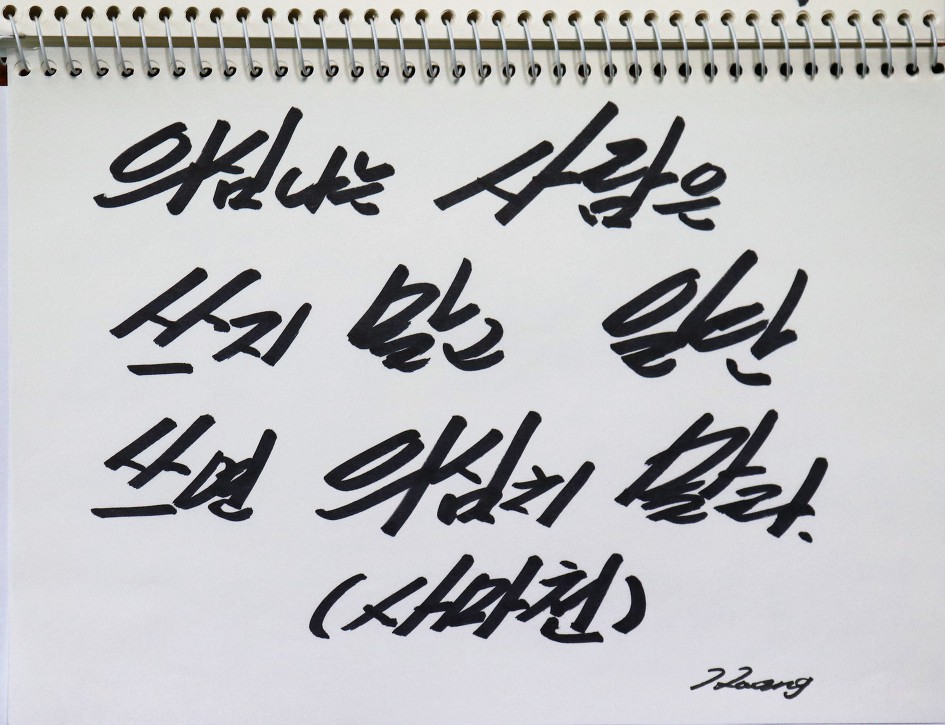 의심나는 사람은
쓰지 말고 일단
쓰면 의심치 말라.
(사마천)